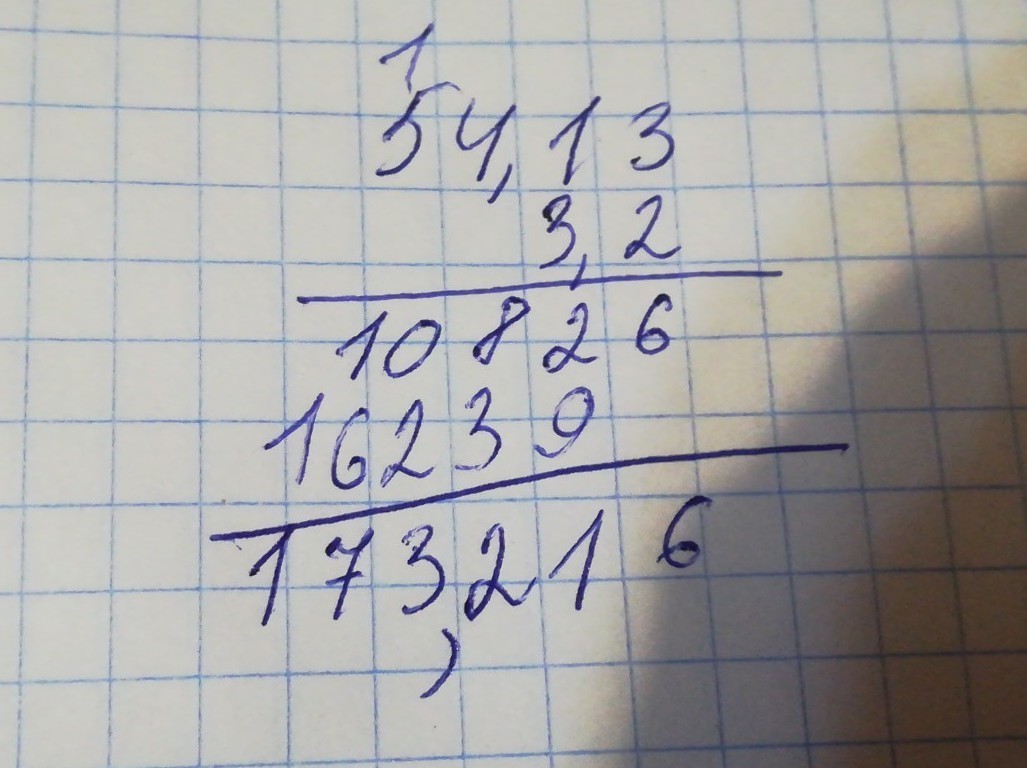 1
54,13
3,2
10826
16239
173,216